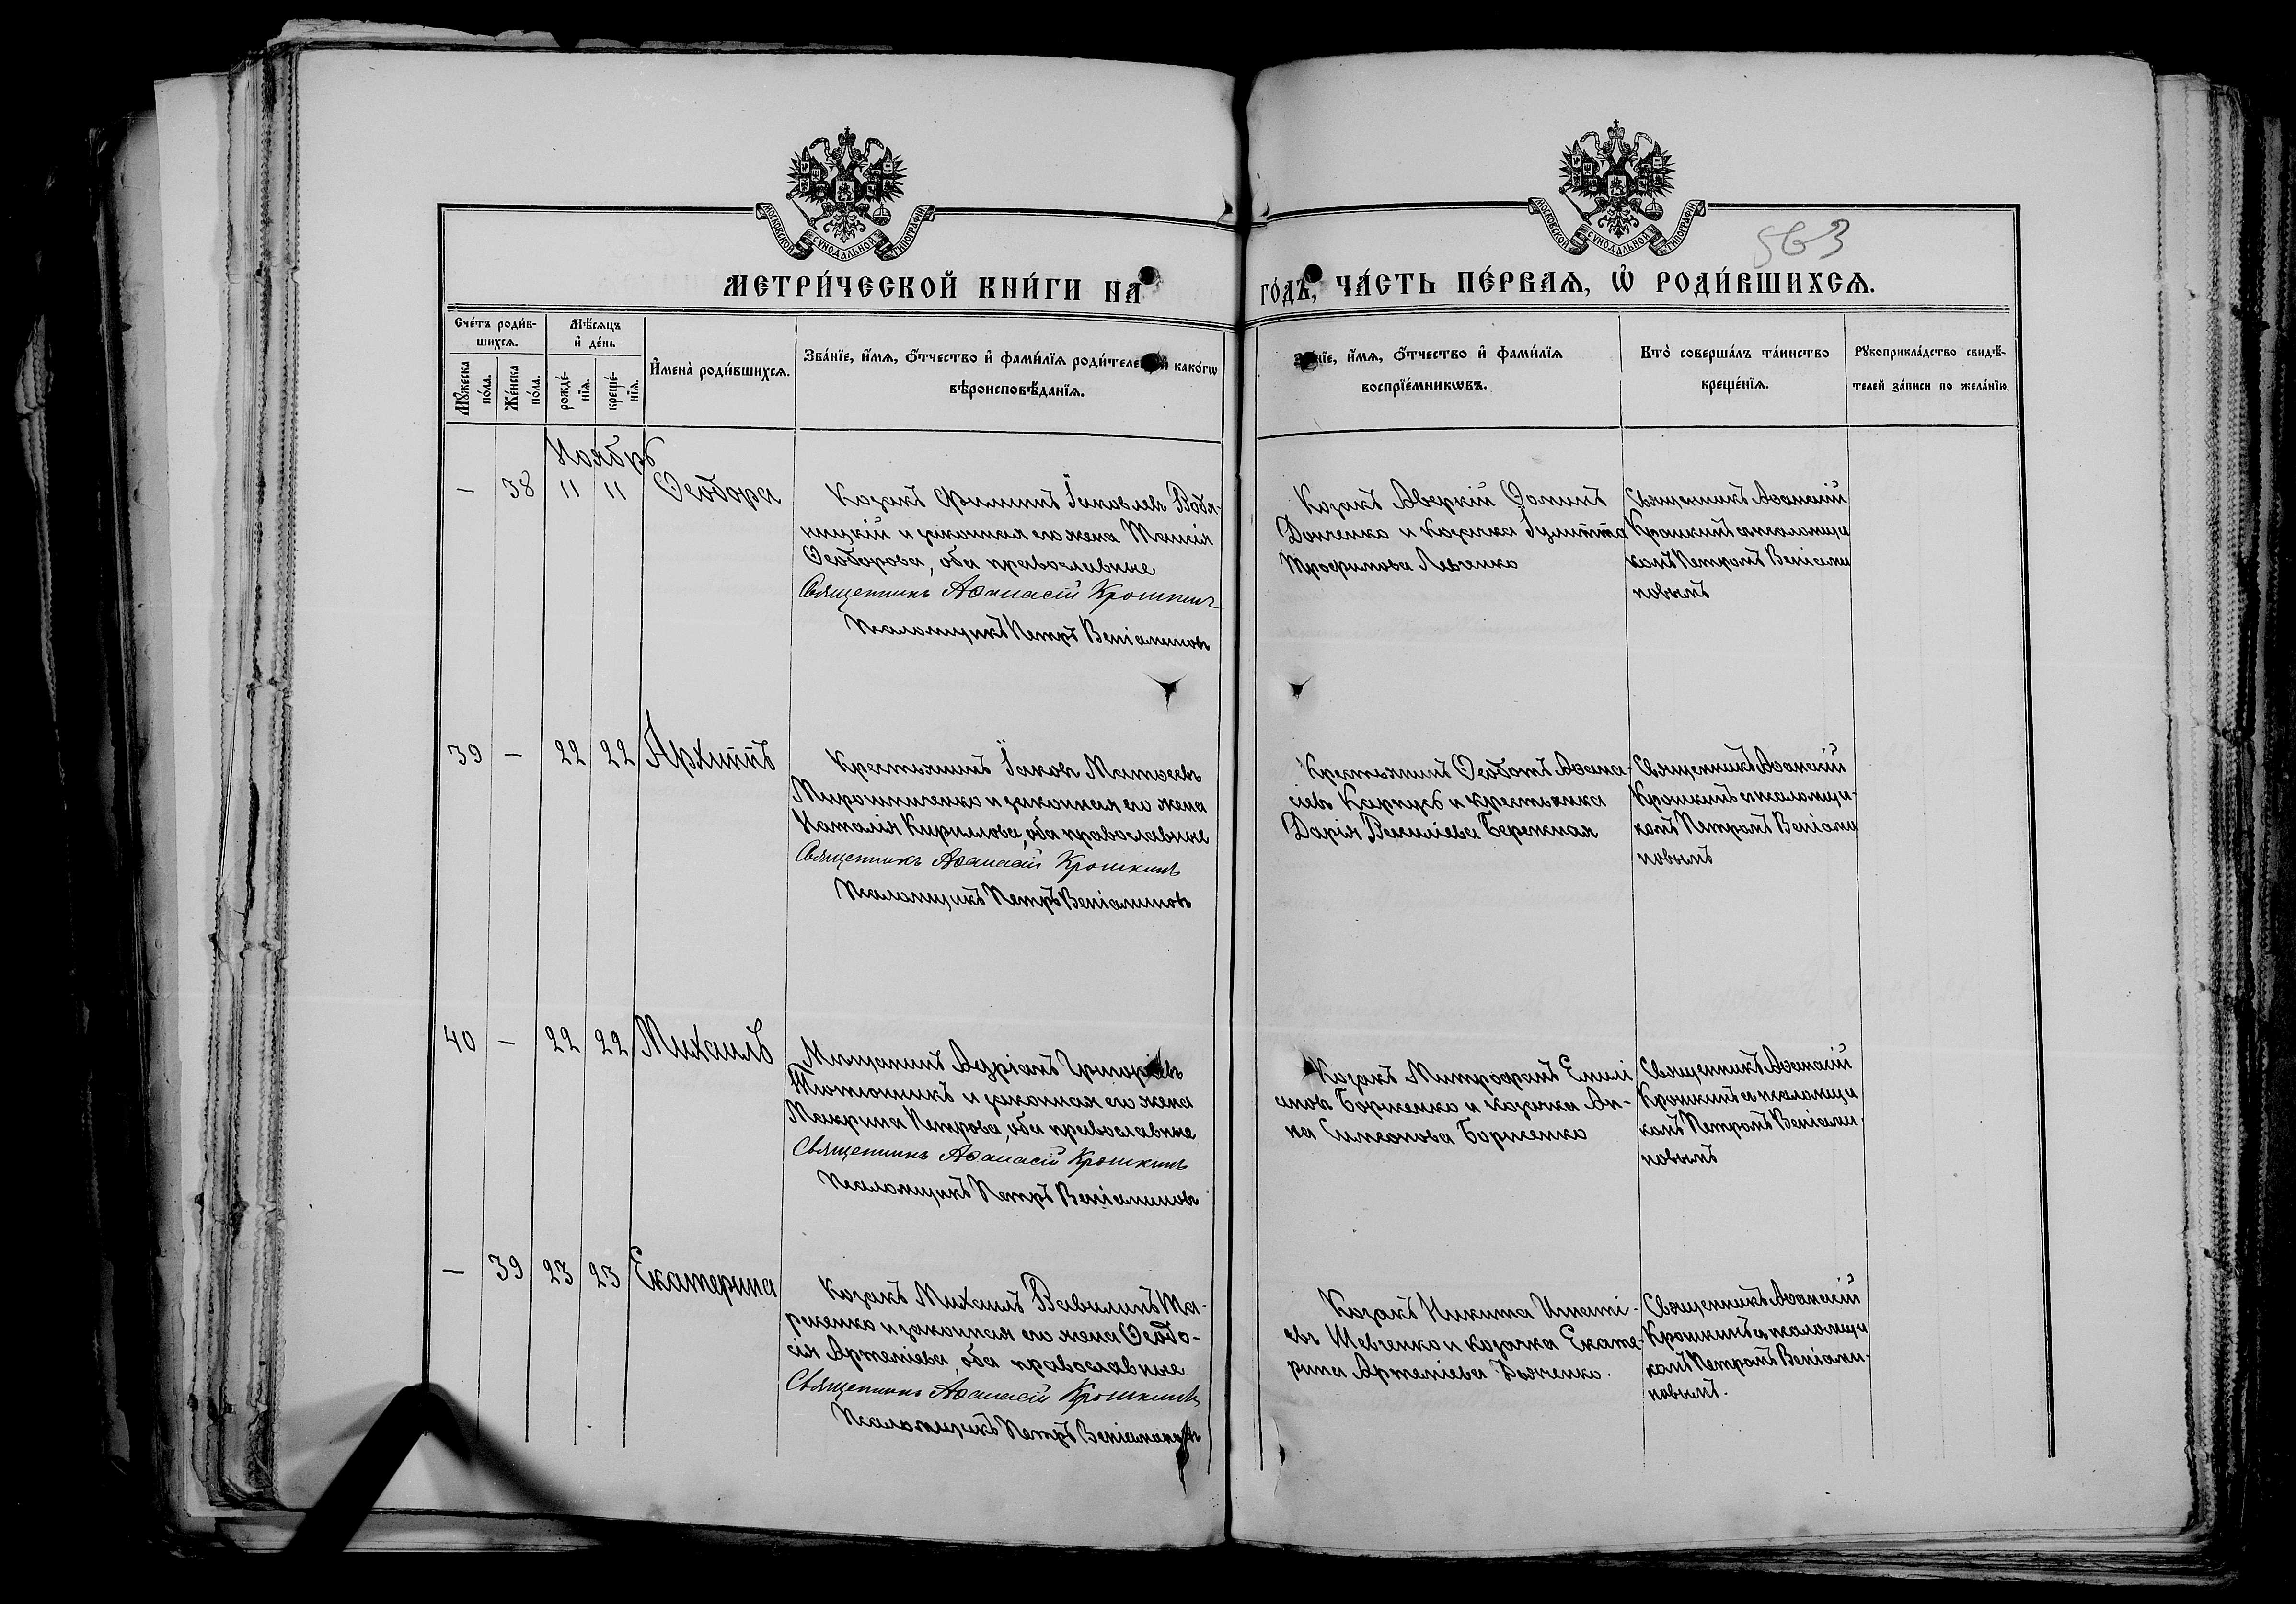 МОСКОВСКОЙ СѴНОДАЛЬНОЙ ТИПОГРАФІИ
МОСКОВСКОЙ СѴНОДАЛЬНОЙ ТИПОГРАФІИ
563
МЕТРИ́ЧЕСКОЙ КНИ́ГИ НА
ГО́ДЪ, ЧА́СТЬ ПЕ́РВАѦ, Ѡ҆ РОДИ́ВШИХСѦ.
Сче́тъ роди́в-
шихсѧ.
Мꙋ́жеска по́ла.
Же́нска по́ла.
Мѣ́сѧцъ
и҆ де́нь
рожде́-
нїѧ.
креще́-
нїѧ.
И҆мена̀ роди́вшихсѧ.
Зва́нїе, и҆́мѧ, ѻ҆́тчество и҆ фами́лїѧ роди́теле и҆ како́гѡ
вѣроисповѣ́данїѧ.
и҆́мѧ, ѻ҆́тчество и҆ фами́лїѧ
воспрїе́мникѡвъ.
Кто̀ соверша́лъ та́инство
креще́нїѧ.
Рꙋкоприкла́дство свидѣ́-
телей за́писи по жела́нїю.
Ноябрь
— 38 11 11 Ѳеодора
Козакъ Филиппъ Іаковлевъ Водя-
ницкій и законная его жена Таисія
Ѳеодорова, оба православные
Священникъ Аѳанасій Крошкинъ
Псаломщикъ Петръ Веніаминовъ
Козакъ Аверкій Ѳоминъ
Донченко и козачка Іулитта
Трофимова Левченко
Священникъ Аѳанасій
Крошкинъ с псаломщи
комъ Петромъ Веніами
новымъ
39 — 22 22 Архиппъ
Крестьянинъ Іаковъ Матѳеевъ
Мирошниченко и законная его жена
Наталія Кирилова, оба православные
Священникъ Аѳанасій Крошкинъ
Псаломщикъ Петръ Веніаминовъ
Крестьянинъ Ѳеодотъ Аѳана-
сіевъ Карпусь и крестьянка
Дарія Василіева Бережная
Священникъ Аѳанасій
Крошкинъ с псаломщи-
комъ Петромъ Веніами
новымъ
40 — 22 22 Михаилъ
Мещанинъ Адріанъ Григоріевъ
Тютюнникъ и законная его жена
Макрина Петрова, оба православные
Священникъ Аѳанасій Крошкинъ
Псаломщикъ Петръ Веніаминовъ
Козакъ Митрофанъ Емилі
ановъ Борженко и козачка Ан-
на Симеонова Борженко
Священникъ Аѳанасій
Крошкинъ с псаломщи
комъ Петромъ Веніами-
новымъ
— 39 23 23 Екатерина
Козакъ Михаилъ Вавилинъ Та-
расенко и законная его жена Ѳеодо-
сія Артеміева, оба православные
Священникъ Аѳанасій Крошкинъ
Псаломщикъ Петръ Веніаминовъ
Козакъ Никита Игнаті-
евъ Шевченко и козачка Екате-
рина Артеміева
Священникъ Аѳанасій
Крошкинъ с псаломщи
комъ Петромъ Веніами-
новымъ.